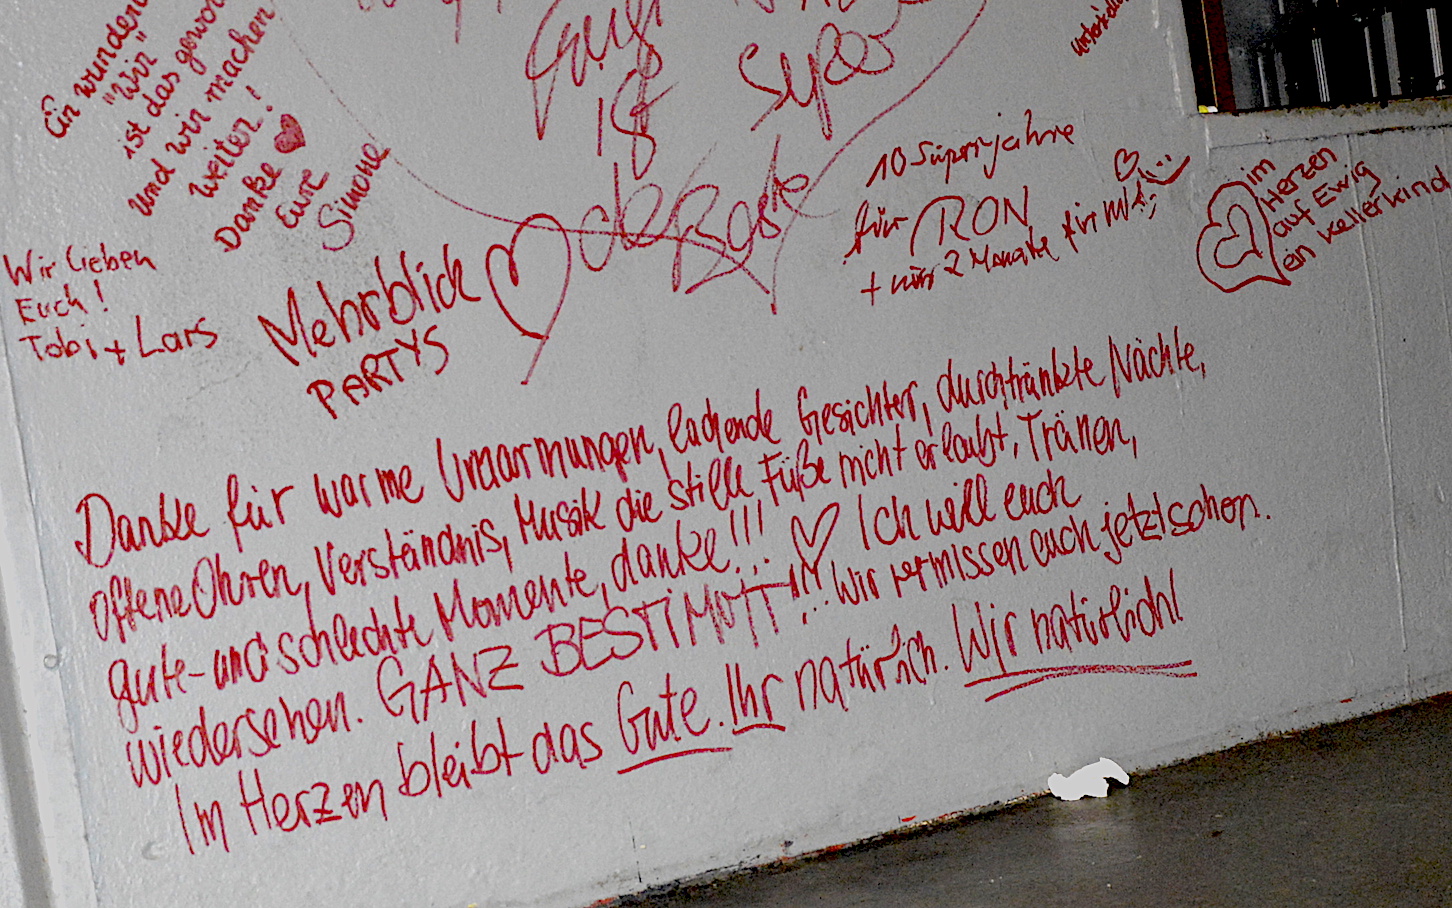 Ein
"Wir"
ist das
und wir machen
weiter!
Danke
Eure
Simone
ist
Super
Wir lieben
Euch!
Tobi + Lars
Mehrblick
PARTYS
10 Superjahre
für RON
+ nur 2 Monate für
im
Herzen
auf Ewig
ein Kellerkind
Danke für warme Umarmungen, lachende Gesichter, durchtränkte Nächte,
offene Ohren, Verständnis, Musik die stille Füße nicht erlaubt, Tränen,
gute- und schlechte Momente, danke!!! Ich will euch
wiedersehen. GANZ BESTIMMT!!! Wir vermissen euch jetzt schon.
Im Herzen bleibt das Gute. Ihr natürlich. Wir natürlich!